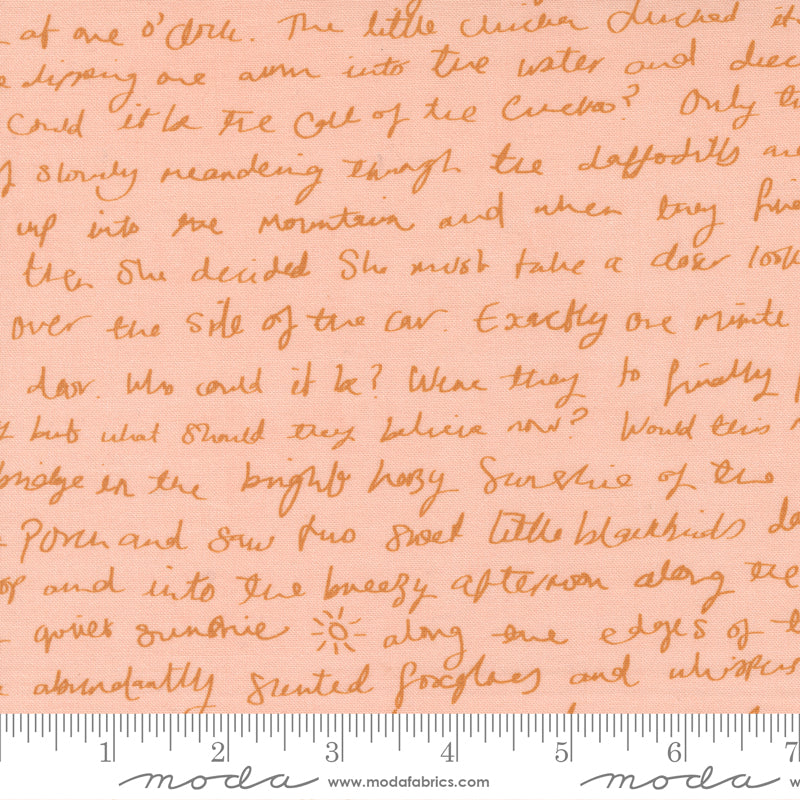 at one o'clock. The little chicken clucked it
dipping one arm into the water and
could it be the call of the cuckoo? Only th
slowly meandering through the daffodills are
up into the mountain and when they fin
then she decided She must take a closer look
over the side of the car. Exactly one minute
door. Who could it be? Were they to finally
but what should they believe now? Would this
bridge in the bright hazy Sunshine of the
Porch and saw two sweet little blackbirds
and into the breezy afternoon along the
quiet sunshine along the edges of t
abundantly scented foxgloves and whispers
1 2 3 4 5 6 7
moda www.modafabrics.com moda w